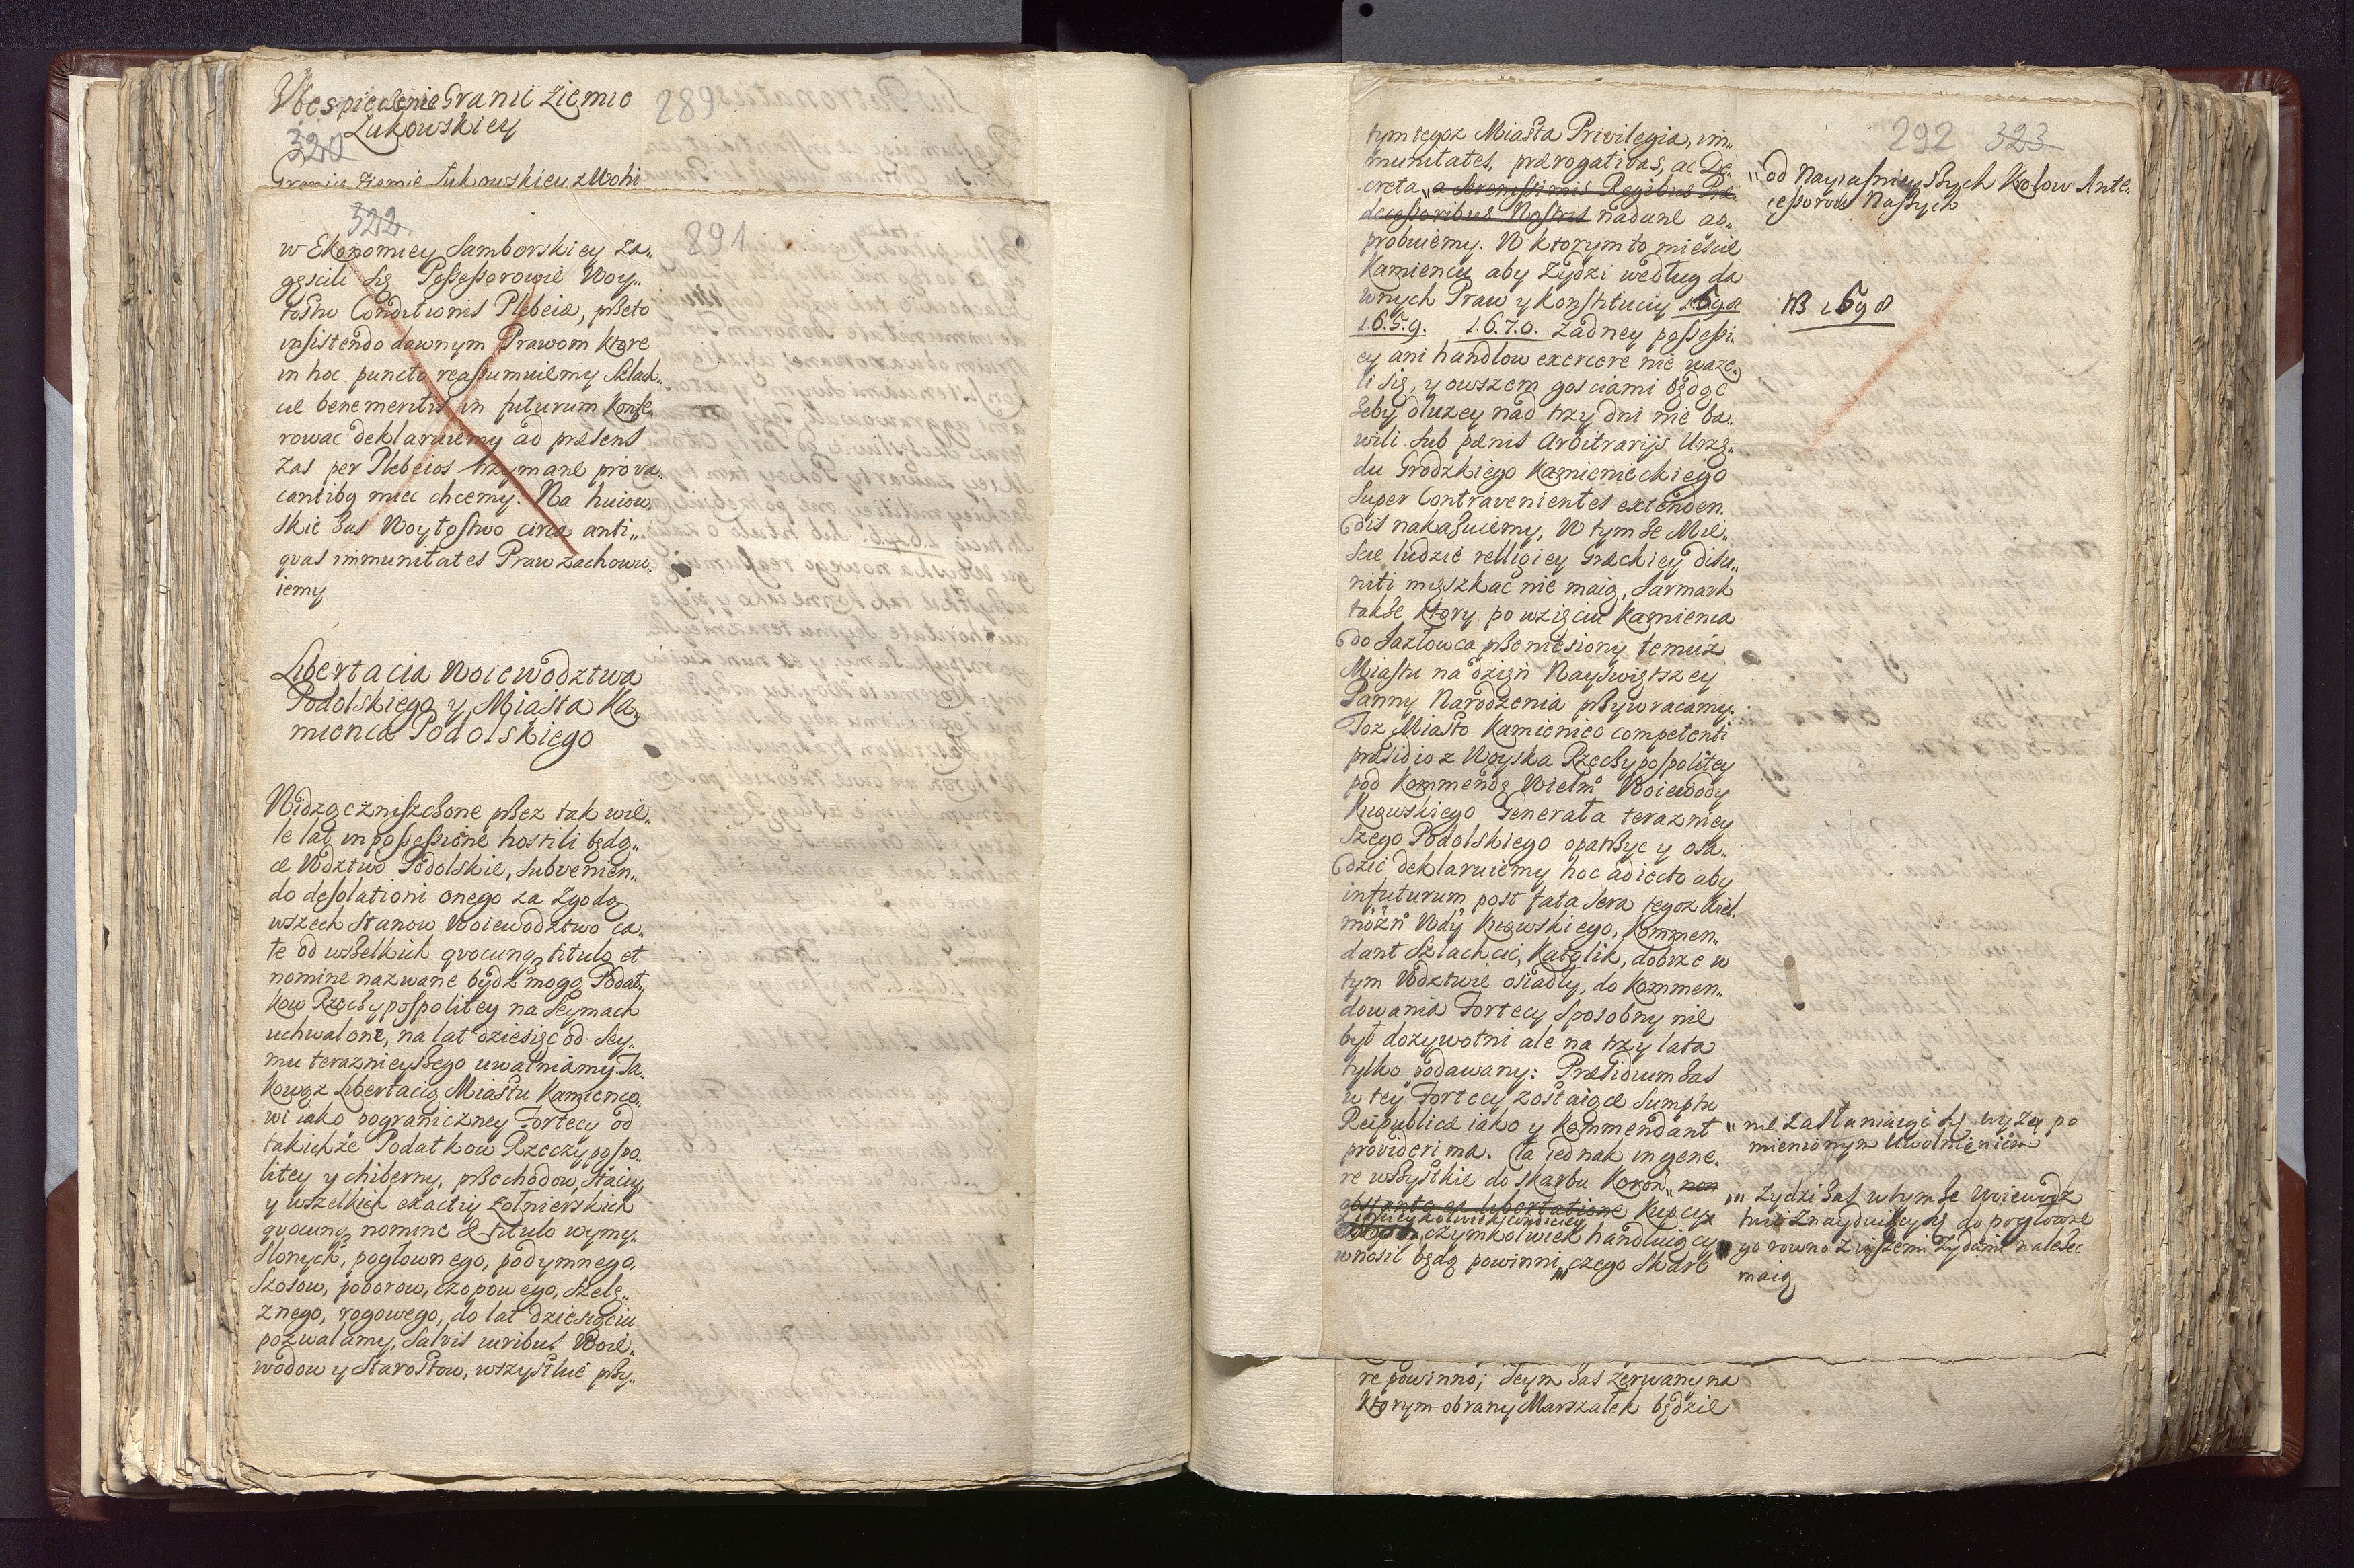 Ubespieczenie Granic Ziemie
Łukowskiey
289
320
Granice Ziemie Łukowskiey z Wohi
322
291
w Ekonomiey Samborskiey za„
gęscili się Possessorowie Woy„
tostw Conditionis Plebeiæ, przeto
insistendo dawnym Prawom ktore
in hoc puncto reassumuiemy Szlach„
cie benemeritis in futurum konfe„
rowac deklaruiemy ad præsens
zas per Plebeios trzymane pro va„
cantibq miec chcemy. Na
skie zas Woytostwo circa anti„
quas immunitates Praw zachowu„
iemy
Libertacia Woiewodztwa
Podolskiego y Miasta Ka„
mienca Podolskiego
Widząc zniszczone przez tak wie„
le lat in possessione hostili będą„
ce Wdztwo Podolskie, subvenien„
do desolationi onego za zgodą
wszech Stanow Woiewodztwo ca„
łe od wszelkich quocunq titulo et
nomine nazwane bydz mogą Podat„
kow Rzeczypospolitey na Seymach
uchwalone, na lat dziesięc od Sey„
mu teraznieyszego uwalniamy. Ta„
kowąz Libertacią Miastu Kamienco„
wi iako pograniczney Fortecy od
takichze Podatkow Rzeczypospo„
litey y chiberny, przechodow, stacii,
y wszelkich exactiy zołnierskich
quocunq nomine & titulo wymy„
slonych, pogłownego, podymnego,
Szosow, poborow, czopowego, szelę„
znego, rogowego, do lat dziesięciu
pozwalamy, salvis iuribus Woie„
wodow y Starostow, wszystkie przy„
292 323
tym tegoz Miasta Privilegia, im„
munitates, prærogativas, ac De„
creta „a Serenissimis Regibus Præ„
decessoribus Nostris nadane ap„
probuiemy. W ktorym to miescie
Kamiencu aby Zydzi według da
wnych Praw y Konstituciy 1598
1659. 1670. zadney possessi„
ey ani handlow exercere nie wazy„
li się, y owszem gosciami będąc
zeby dłuzey nad trzy dni nie ba„
wili sub pænis Arbitrarijs Urzę„
du Grodzkiego Kamienieckiego
super Contravenientes extenden„
dis nakazuiemy, W tymze Mie„
scie ludzie relligiey Græckiey disu„
niti mięszkac nie maią, Jarmark
takze ktory po wzięciu Kamienca
do Jazłowca przeniesiony temuz
Miastu na dzien Nayswiętszey
Panny Narodzenia przywracamy.
Toz Miasto Kamieniec competenti
præsidio z Woyska Rzeczypospolitey
pod Kommendą Wielm Woiewody
Kiiowskiego Generała terazniey
szego Podolskiego opatrzyc y osa„
dzic deklaruiemy hoc adiecto aby
in futurum post fata sera tegoz Wiel„
możn Wdy Kiiowskiego, Kommen„
dant Szlachcic, Katolik, dobrze w
tym Wdztwie osiadły, do Kommen„
dowania Fortecy sposobny nie
był dozywotni ale na trzy lata
tylko podawany: Præsidium zas
w tey Fortecy zostaiące sumptu
Reipublicæ iako y Kommendant
provideri ma. Cła iednak in gene„
re wszystkie do skarbu Koron„ non
obstante ea libertatione Kupcy
y inszey kolwiek condiciey
czymkolwiek handluiący
wnosic będą powinni, „czego Skarb
„od Nayiasnieyszych Krolow Ante„
cessorow Naszych
NB 1598
„nie zasłaniaiąc się wyzey po
mienionym uwolnieniem
„Zydzi zas w tymze Woiewodz
twie znayduiący się do pogłowne
go rowno z inszemi Zydami nalezec
maią
re powinno; Seym zas zerwany na
ktorym obrany Marszałek będzie